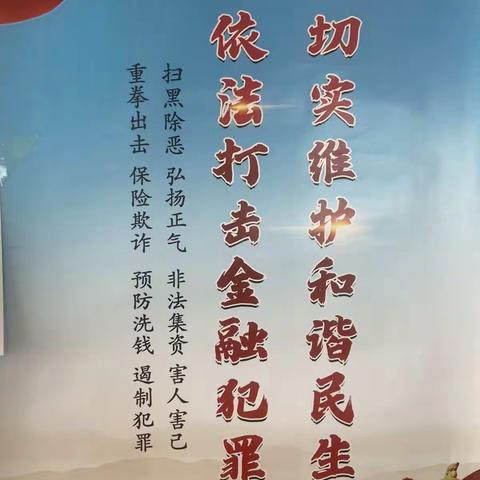 切实维护和谐民生
依法打击金融犯罪
扫黑除恶 弘扬正气 非法集资 害人害己
重拳出击 保险欺诈 预防洗钱 遏制犯罪